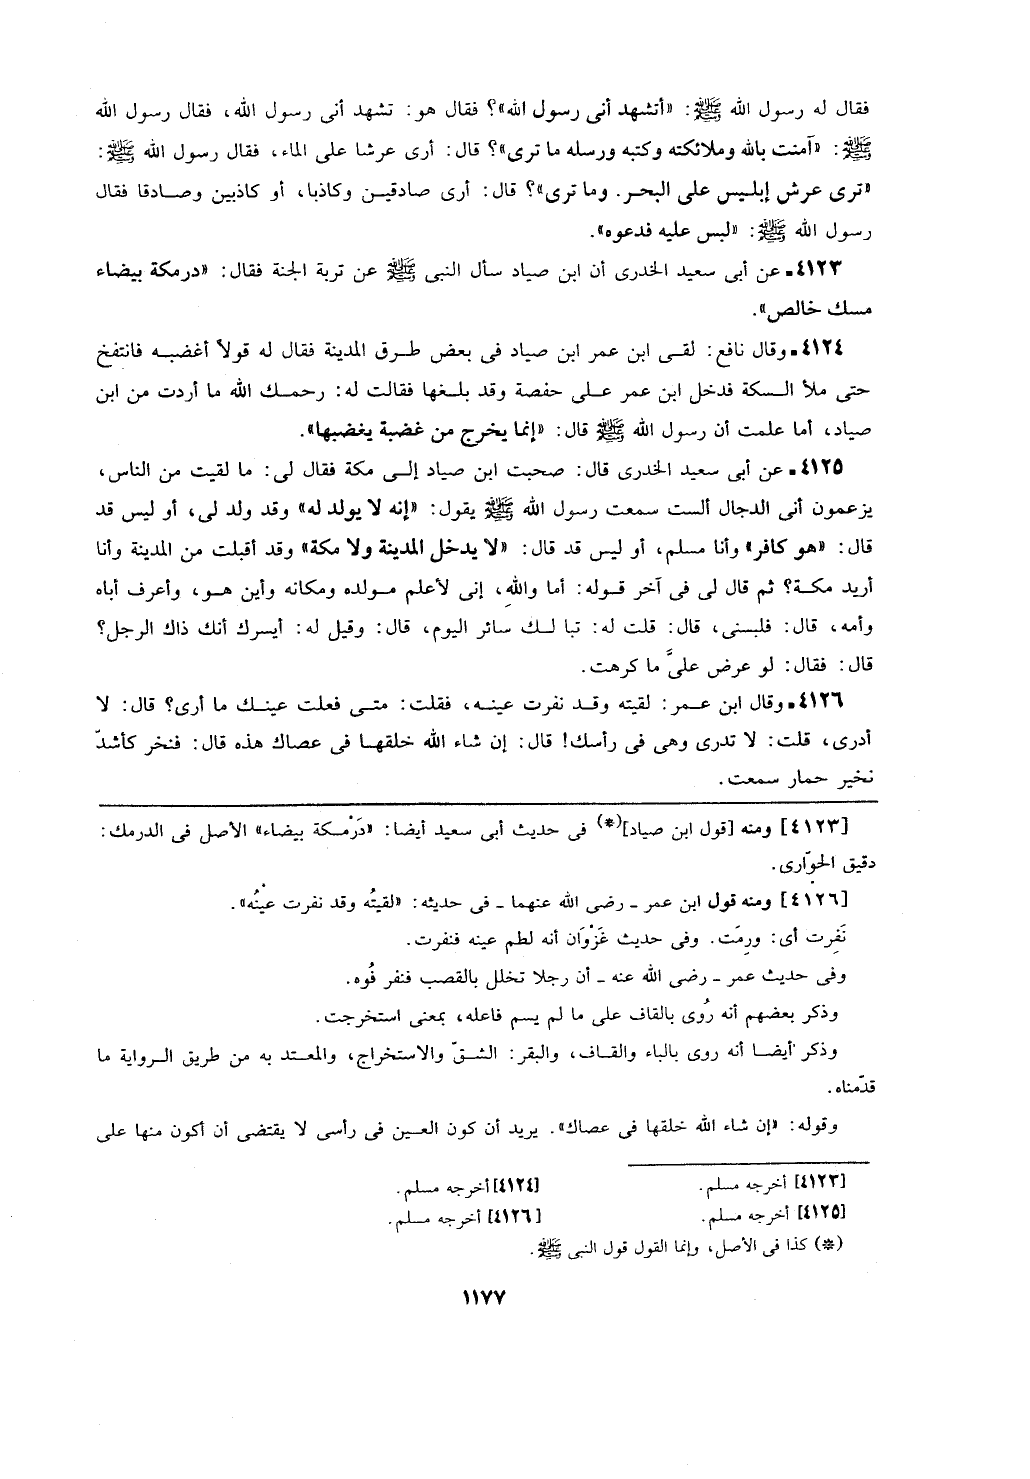 فقال له رسول الله ﷺ: «أتشهد أنى رسول الله»؟ فقال هو: تشهد أنى رسول الله، فقال رسول الله
ﷺ: «آمنت بالله وملائكته وكتبه ورسله ما ترى»؟ قال: أرى عرشا على الماء، فقال رسول الله ﷺ:
«ترى عرش إبليس على البحر. وما ترى»؟ قال: أرى صادقين وكاذبا، أو كاذبين وصادقا فقال
رسول الله ﷺ: «لبس عليه فدعوه».
٤١٢٣- عن أبى سعيد الخدرى أن ابن صياد سأل النبى ﷺ عن تربة الجنة فقال: «درمكة بيضاء
مسك خالص».
٤١٢٤- وقال نافع: لقى ابن عمر ابن صياد فى بعض طرق المدينة فقال له قولاً أغضبه فانتفخ
حتى ملأ السكة فدخل ابن عمر على حفصة وقد بلغها فقالت له: رحمك الله ما أردت من ابن
صياد، أما علمت أن رسول الله ﷺ قال: «إنما يخرج من غضبة يغضبها».
٤١٢٥- عن أبى سعيد الخدرى قال: صحبت ابن صياد إلى مكة فقال لى: ما لقيت من الناس،
يزعمون أنى الدجال ألست سمعت رسول الله ﷺ يقول: «إنه لا يولد له» وقد ولد لى، أو ليس قد
قال: «هو كافر» وأنا مسلم، أو ليس قد قال: «لا يدخل المدينة ولا مكة» وقد أقبلت من المدينة وأنا
أريد مكة؟ ثم قال لى فى آخر قوله: أما واللهِ، إنى لأعلم مولده ومكانه وأين هو، وأعرف أباه
وأمه، قال: فلبسنى، قال: قلت له: تبا لك سائر اليوم، قال: وقيل له: أيسرك أنك ذاك الرجل؟
قال: فقال: لو عرض علىَّ ما كرهت.
٤١٢٦- وقال ابن عمر: لقيته وقد نفرت عينه، فقلت: متى فعلت عينك ما أرى؟ قال: لا
أدرى، قلت: لا تدرى وهى فى رأسك! قال: إن شاء الله خلقها فى عصاك هذه قال: فنخر كأشدّ
نخير حمار سمعت.
[٤١٢٣] ومنه [قول ابن صياد](*) فى حديث أبى سعيد أيضا: «دَرْمكة بيضاء» الأصل فى الدرمك:
دقيق الحوّارى.
[٤١٢٦] ومنه قول ابن عمر - رضى الله عنهما - فى حديثه: «لقيتُه وقد نفرت عيْنُه».
نَفِرت أى: ورِمَت. وفى حديث غَزْوَان أنه لطم عينه فنفرت.
وفى حديث عمر - رضى الله عنه - أن رجلا تخلل بالقصب فنفر فُوه.
وذكر بعضهم أنه رُوى بالقاف على ما لم يسم فاعله، بمعنى استخرجت.
وذكر أيضا أنه روى بالباء والقاف، والبقر: الشقّ والاستخراج، والمعتد به من طريق الرواية ما
قدّمناه.
وقوله: «إن شاء الله خلقها فى عصاك». يريد أن كون العين فى رأسى لا يقتضى أن أكون منها على
[٤١٢٣] أخرجه مسلم. [٤١٢٤] أخرجه مسلم.
[٤١٢٥] أخرجه مسلم. [٤١٢٦] أخرجه مسلم.
(*) كذا فى الأصل، وإنما القول قول النبى ﷺ.
١١٧٧